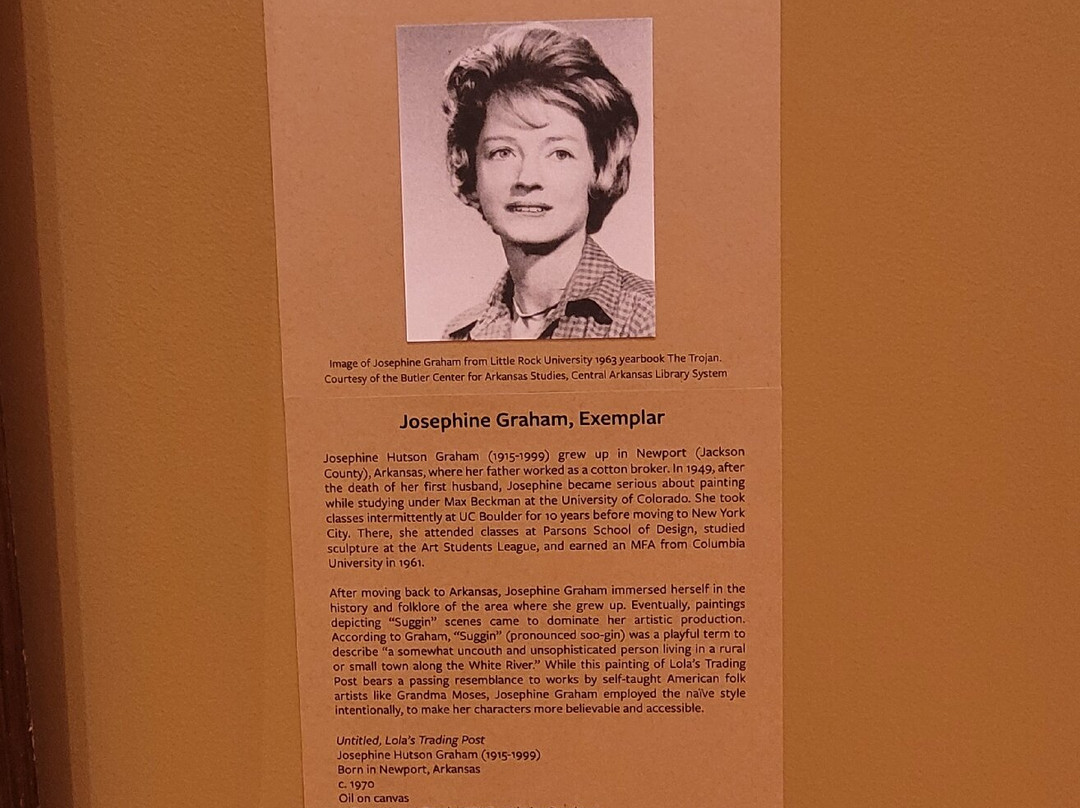 Image of Josephine Graham from Little Rock University 1963 yearbook The Trojan.
Courtesy of the Butler Center for Arkansas Studies, Central Arkansas Library System
Josephine Graham, Exemplar
Josephine Hutson Graham (1915-1999) grew up in Newport (Jackson
County), Arkansas, where her father worked as a cotton broker. In 1949, after
the death of her first husband, Josephine became serious about painting
while studying under Max Beckman at the University of Colorado. She took
classes intermittently at UC Boulder for 10 years before moving to New York
City. There, she attended classes at Parsons School of Design, studied
sculpture at the Art Students League, and earned an MFA from Columbia
University in 1961.
After moving back to Arkansas, Josephine Graham immersed herself in the
history and folklore of the area where she grew up. Eventually, paintings
depicting “Suggin” scenes came to dominate her artistic production.
According to Graham, “Suggin” (pronounced soo-gin) was a playful term to
describe “a somewhat uncouth and unsophisticated person living in a rural
or small town along the White River.” While this painting of Lola’s Trading
Post bears a passing resemblance to works by self-taught American folk
artists like Grandma Moses, Josephine Graham employed the naïve style
intentionally, to make her characters more believable and accessible.
Untitled, Lola’s Trading Post
Josephine Hutson Graham (1915-1999)
Born in Newport, Arkansas
c. 1970
Oil on canvas